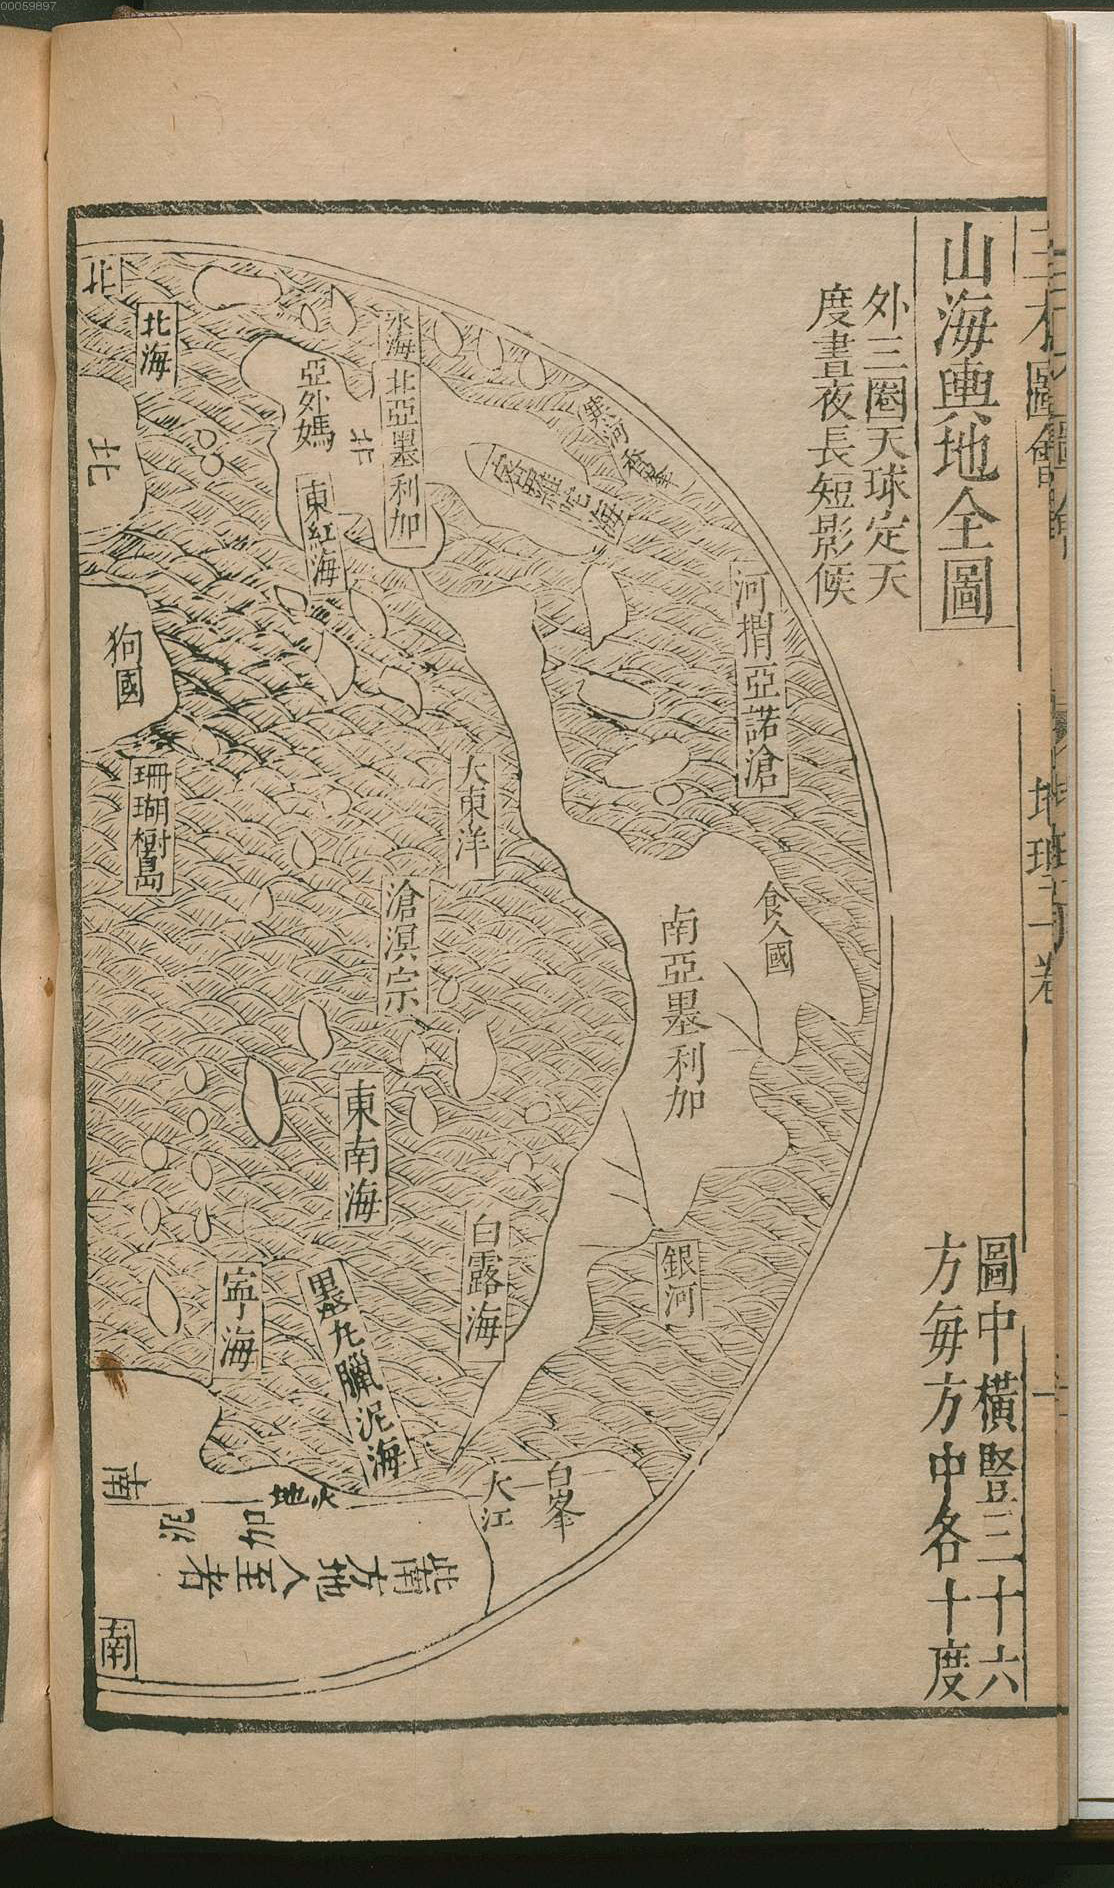 00059897
三才圖會
地理一卷
一
山海輿地全圖
外三圈天球定天
度晝夜長短影候
圖中橫豎三十六
方每方中各十度
北
北海
北
亞外媽
北
氷海
北亞墨利加
東紅海
狗國
珊瑚樹島
河摺亞諾滄
大東洋
滄溟宗
食人國
南亞墨利加
東南海
白露海
銀河
寧海
墨瓦臘泥海
白峯
大江
火地
南
泥
加
此南方地人至者
南